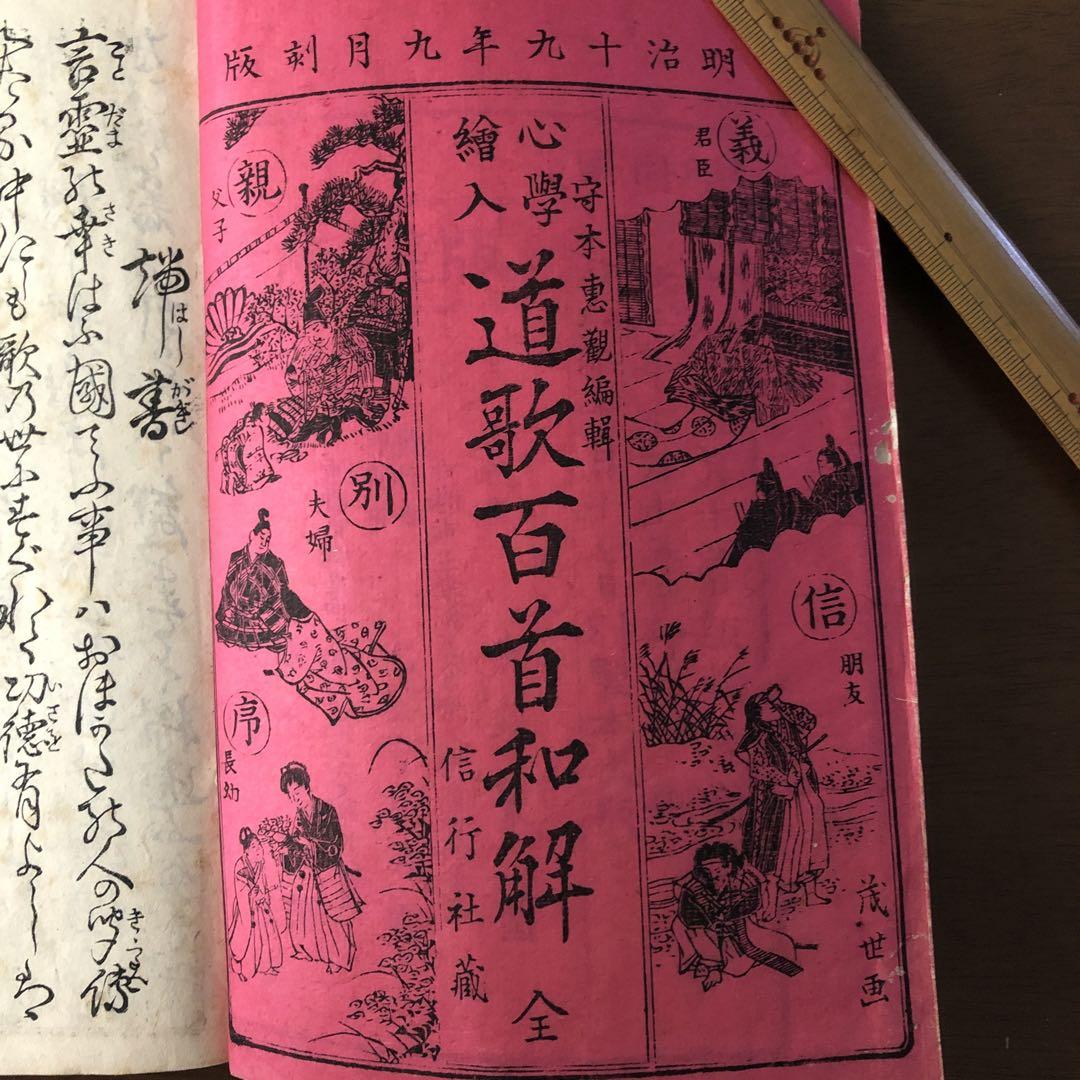 明治十九年九月刻版
義
君臣
信
朋友
茂世画
守本惠觀編輯
心學
繪入
道歌百首和解
全
信行社藏
親
父子
別
夫婦
序
長幼
端書
はしがき
言靈の幸はふ國てふ事ハおほかたの人の
ことだま さき
中にも歌乃世に
功德有
いさを